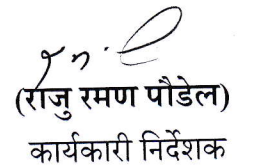 (राजु रमण पौडेल)
कार्यकारी निर्देशक